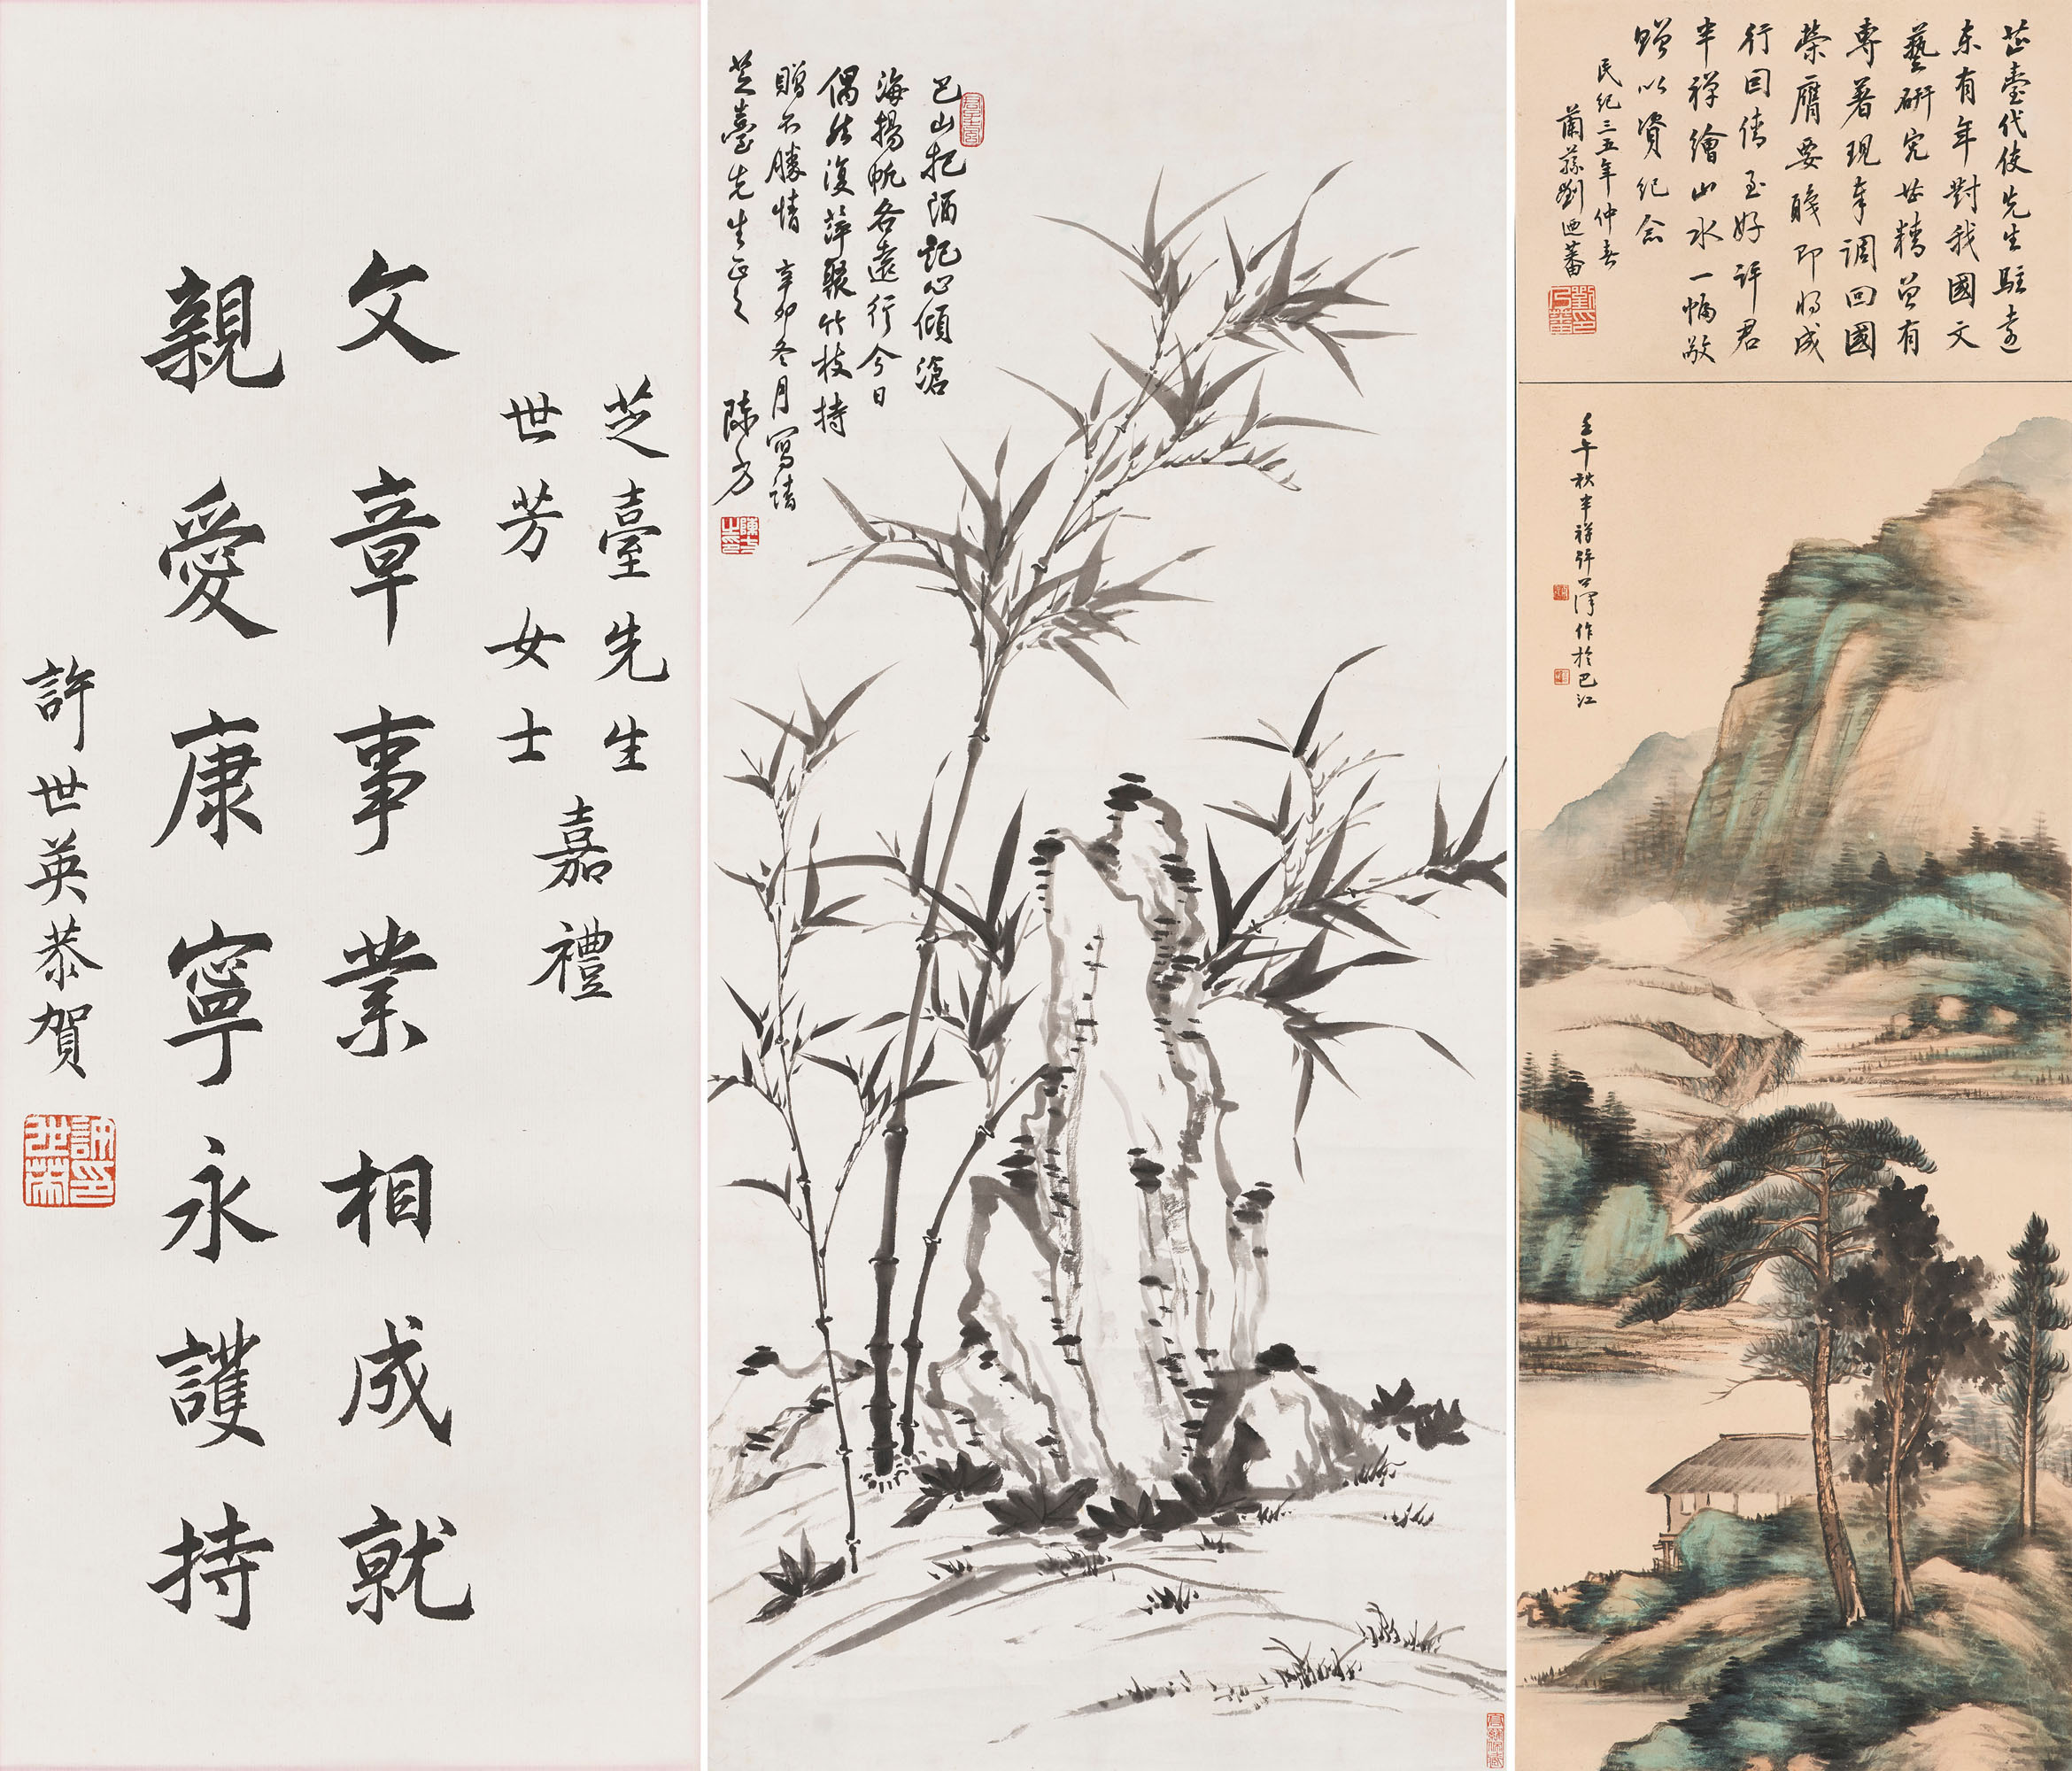 芝臺先生
世芳女士
嘉禮
文章事業相成就
親愛康寧永護持
許世英恭賀
巴山把酒記心傾滄
海揚帆各遠行今日
偶然復萍聚竹枝持
贈不勝情 辛卯冬月寫請
芝臺先生正之 陳方
芝臺代使先生駐吉
東有年對我國文
藝研究甚精曾有
專著現奉調回國
榮膺要職即將成
行囙倩至好許君
半禪繪山水一幅敬
贈以資紀念
民紀三五年仲春
蘭蓀劉迺蕃
壬午秋半禪許公澤作於巴江